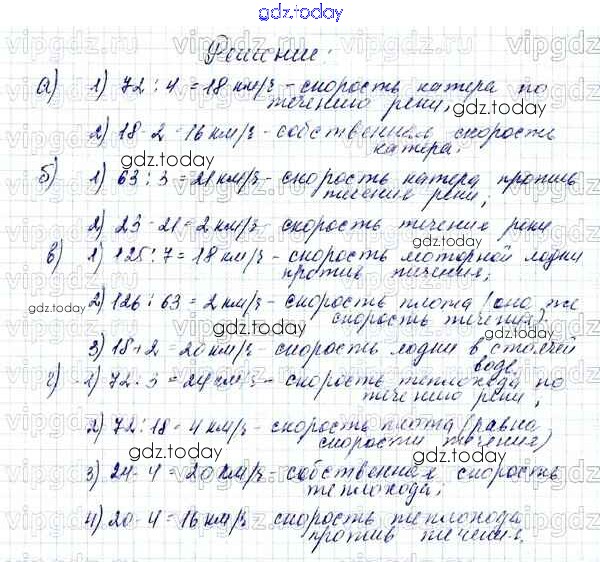 gdz.today
Решение:
а) 1) 72 : 4 = 18 км/ч - скорость катера по
течению реки;
gdz.today
2) 18 - 2 = 16 км/ч - собственная скорость
катера.
gdz.today
б) 1) 63 : 3 = 21 км/ч - скорость катера против
течения реки;
gdz.today
2) 23 - 21 = 2 км/ч - скорость течения реки
в) 1) 125 : 7 = 18 км/ч - скорость моторной лодки
против течения;
gdz.today
gdz.today
2) 126 : 63 = 2 км/ч - скорость плота (она же
скорость течения).
gdz.today
3) 18 + 2 = 20 км/ч - скорость лодки в стоячей
воде.
г) 1) 72 : 3 = 24 км/ч - скорость теплохода по
течению реки;
gdz.today
2) 72 : 18 = 4 км/ч - скорость плота (равна
скорости течения)
gdz.today
3) 24 - 4 = 20 км/ч - собственная скорость
теплохода;
gdz.today
4) 20 - 4 = 16 км/ч скорость теплохода
против течения.
gdz.today